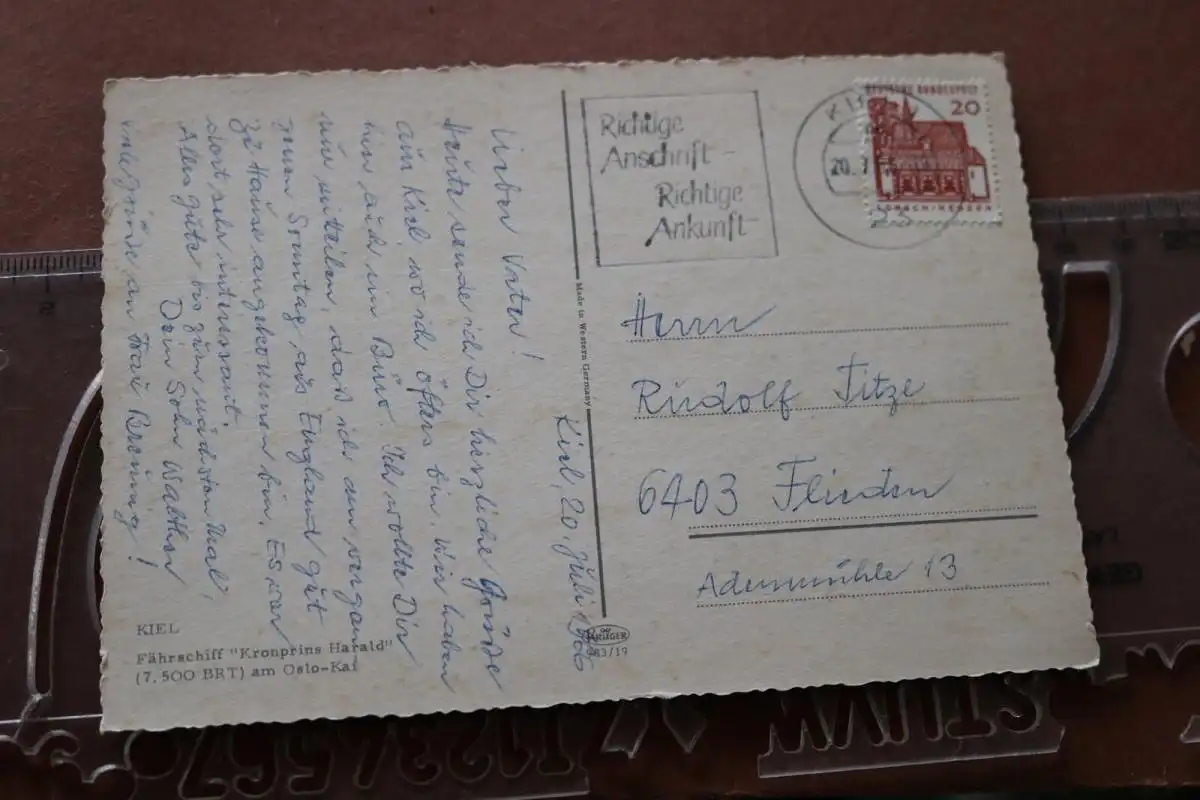 Kiel, 20. Juli 1966
Lieber Vater!
Heute sende ich Dir herzliche Grüße
aus Kiel, wo ich öfters bin. Wir haben
hier auch ein Büro. Ich wollte Dir
nur mitteilen, dass ich am vergan
genen Sonntag aus England gut
zu Hause angekommen bin. Es war
dort sehr interessant.
Alles gute bis zum nächsten Mal,
Dein Sohn Walther
viele Grüße an Frau Breuing!
KIEL
Fährschiff "Kronprins Harald"
(7.500 BRT) am Oslo-Kai
Made in Western Germany
KRÜGER
983/19
Richtige
Anschrift -
Richtige
Ankunft
KIEL
20. 7.
DEUTSCHE BUNDESPOST
20
LORSCH/HESSEN
Herrn
Rudolf Titze
6403 Flieden
Adenmühle 13
STUVW
1234567